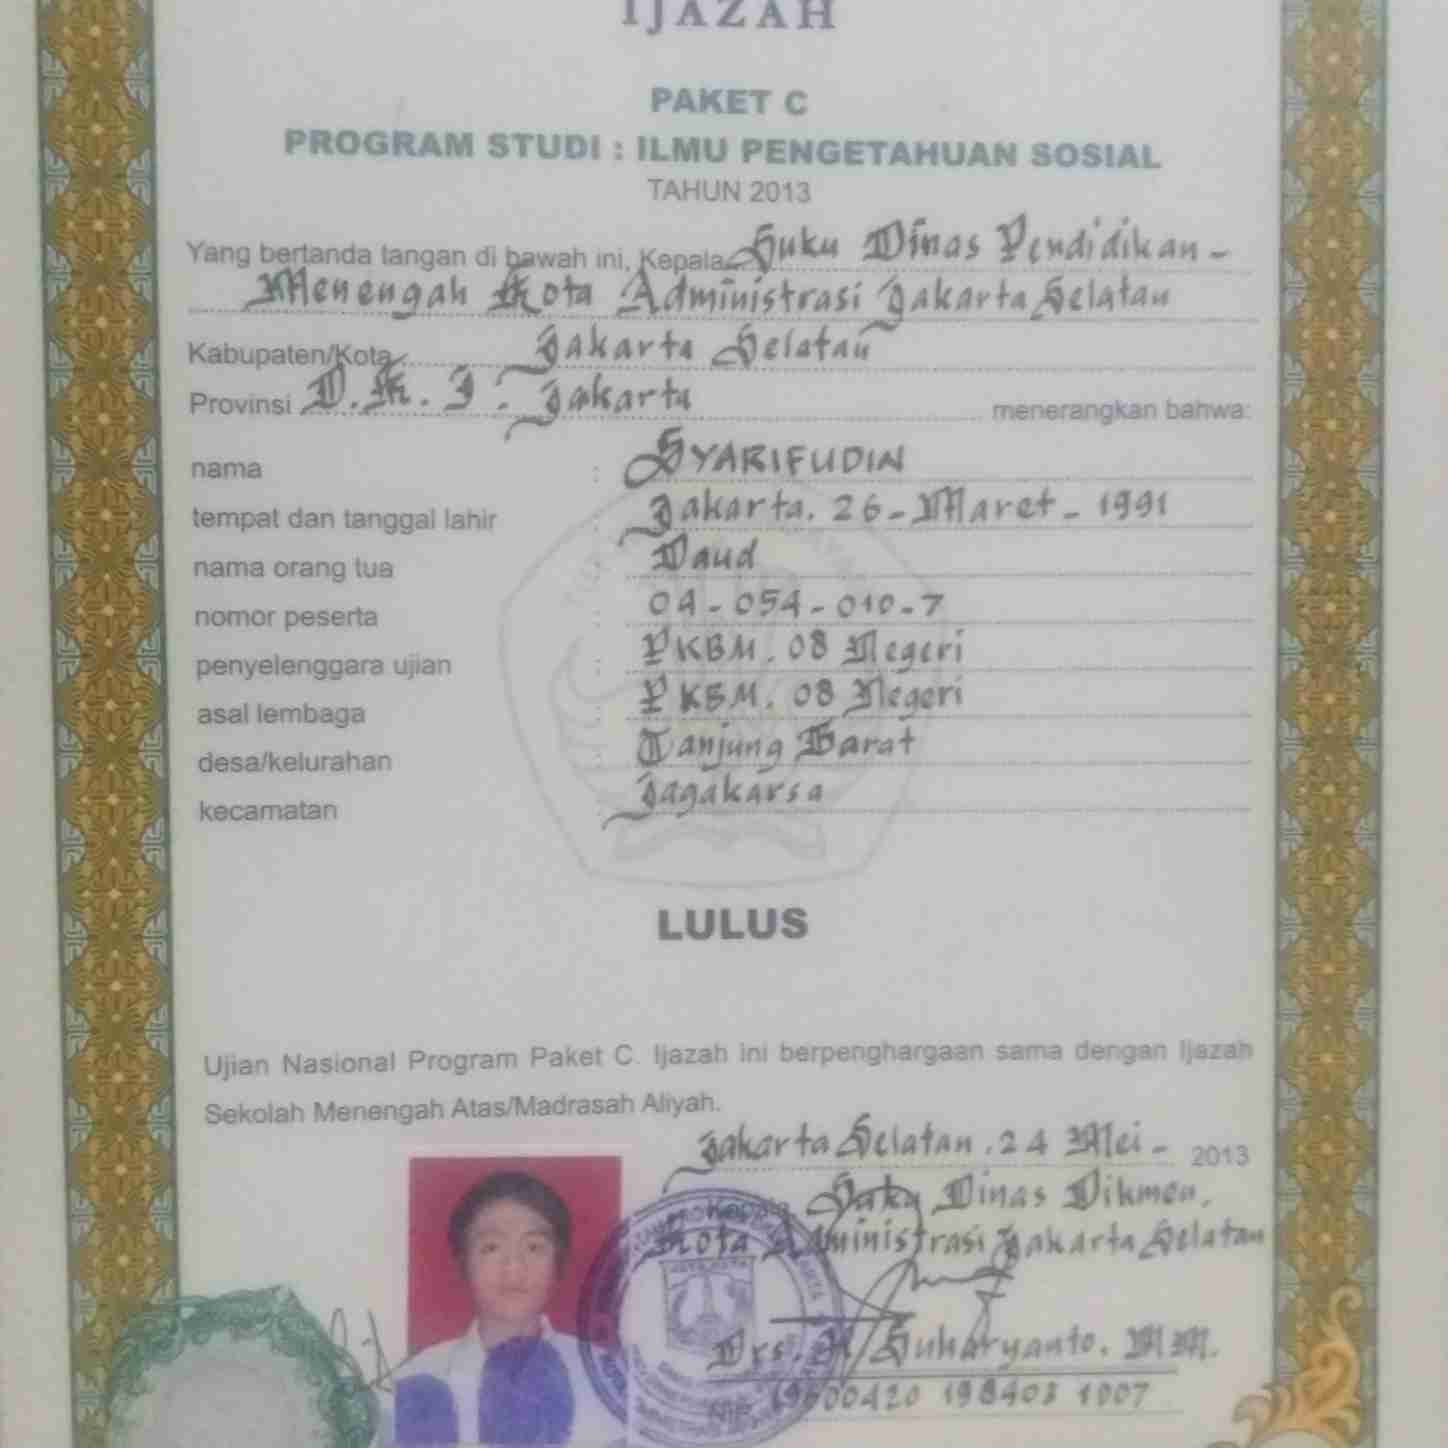 IJAZAH
PAKET C
PROGRAM STUDI : ILMU PENGETAHUAN SOSIAL
TAHUN 2013
Yang bertanda tangan di bawah ini, Kepala Suku Dinas Pendidikan -
Menengah Kota Administrasi Jakarta Selatan
Kabupaten/Kota Jakarta Selatan
Provinsi D.K.I. Jakarta menerangkan bahwa:
nama : SYARIFUDIN
tempat dan tanggal lahir : Jakarta, 26 - Maret - 1991
nama orang tua : Daud
nomor peserta : 04 - 054 - 010 - 7
penyelenggara ujian : PKBM. 08 Negeri
asal lembaga : PKBM. 08 Negeri
desa/kelurahan : Tanjung Barat
kecamatan : Jagakarsa
LULUS
Ujian Nasional Program Paket C. Ijazah ini berpenghargaan sama dengan Ijazah
Sekolah Menengah Atas/Madrasah Aliyah.
Jakarta Selatan, 24 Mei - 2013
Kepala Suku Dinas Dikmen,
Kota Administrasi Jakarta Selatan
Drs. H Suharyanto, MM.
NIP 19600420 198403 1007